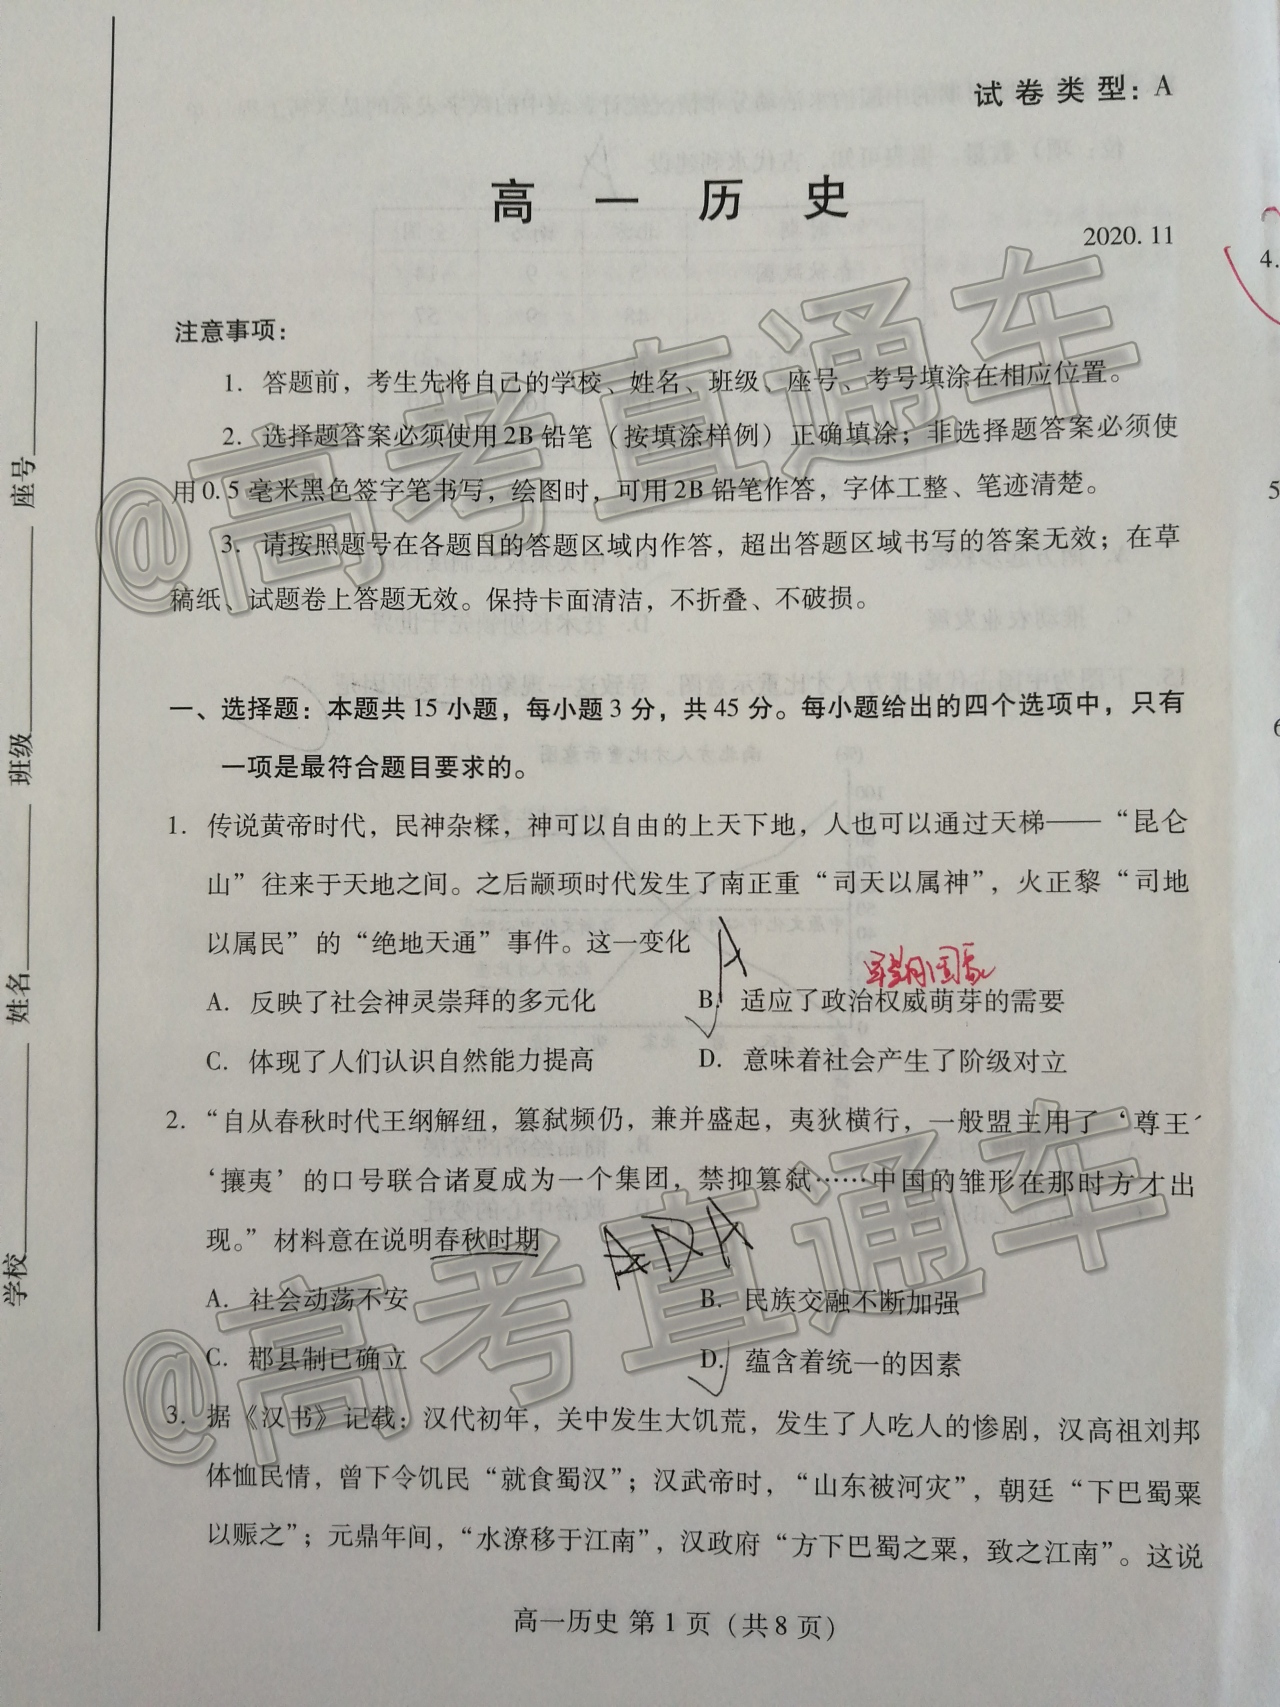 试卷类型：A
高一历史
2020.11
注意事项：
1. 答题前，考生先将自己的学校、姓名、班级、座号、考号填涂在相应位置。
2. 选择题答案必须使用2B铅笔（按填涂样例）正确填涂；非选择题答案必须使
用0.5毫米黑色签字笔书写，绘图时，可用2B铅笔作答，字体工整、笔迹清楚。
3. 请按照题号在各题目的答题区域内作答，超出答题区域书写的答案无效；在草
稿纸、试题卷上答题无效。保持卡面清洁，不折叠、不破损。
一、选择题：本题共15小题，每小题3分，共45分。每小题给出的四个选项中，只有
一项是最符合题目要求的。
1. 传说黄帝时代，民神杂糅，神可以自由的上天下地，人也可以通过天梯——“昆仑
山”往来于天地之间。之后颛顼时代发生了南正重“司天以属神”，火正黎“司地
以属民”的“绝地天通”事件。这一变化
A
早期国家
A. 反映了社会神灵崇拜的多元化 B. 适应了政治权威萌芽的需要
C. 体现了人们认识自然能力提高 D. 意味着社会产生了阶级对立
2. “自从春秋时代王纲解纽，篡弑频仍，兼并盛起，夷狄横行，一般盟主用了‘尊王’
‘攘夷’的口号联合诸夏成为一个集团，禁抑篡弑……中国的雏形在那时方才出
现。”材料意在说明春秋时期
ADA
A. 社会动荡不安 B. 民族交融不断加强
C. 郡县制已确立 D. 蕴含着统一的因素
3. 据《汉书》记载：汉代初年，关中发生大饥荒，发生了人吃人的惨剧，汉高祖刘邦
体恤民情，曾下令饥民“就食蜀汉”；汉武帝时，“山东被河灾”，朝廷“下巴蜀粟
以赈之”；元鼎年间，“水潦移于江南”，汉政府“方下巴蜀之粟，致之江南”。这说
高一历史 第1页（共8页）
学校 姓名 班级 座号
4.
5
6
@高考直通车
@高考直通车